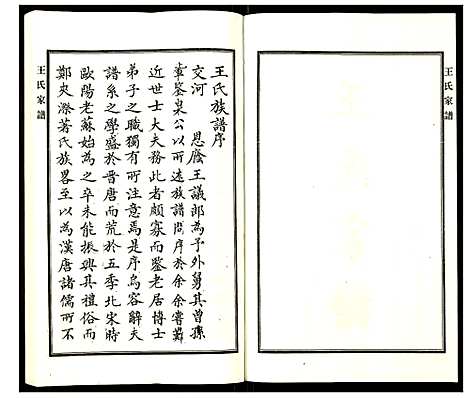 王氏家譜
王氏族譜序
交河　恩廕王議郎為予外舅其曾孫
鑒泉公以所遠族譜問序於余余嘗
近世士大夫務此者頗寡而鑒老居博士
弟子之職獨有所注意焉是序烏容辭夫
譜系之學盛於晉唐而荒於五季北宋時
歐陽老蘇始為之卒未能振興其禮俗而
鄭夾漈著氏族畧至以為漢唐諸儒所不
王氏家譜